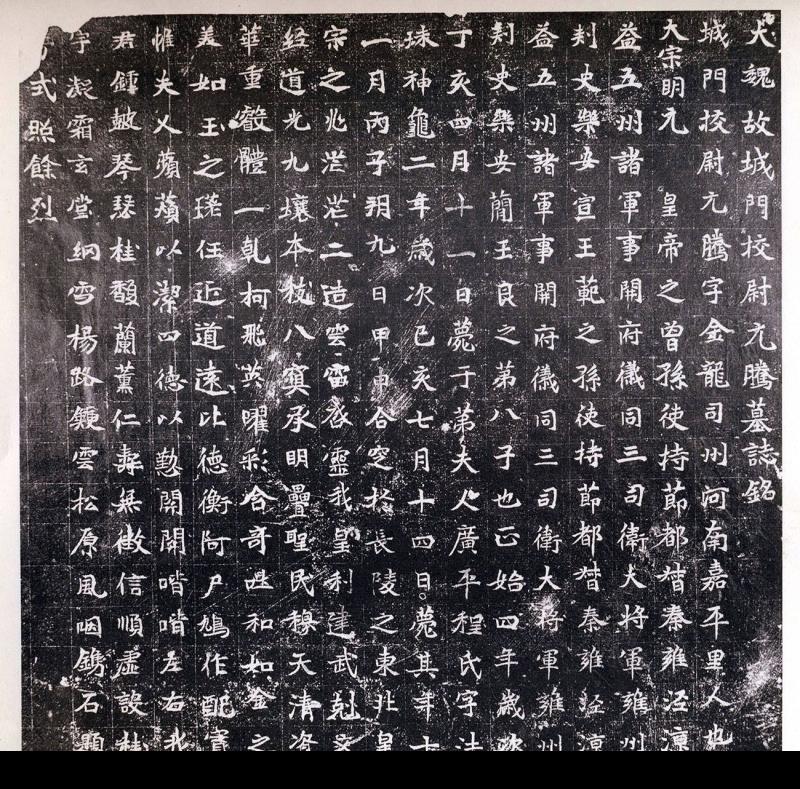 大魏故城門挍尉元騰墓誌銘
城門挍尉元騰字金龍司州河南嘉平里人也
太宗明元皇帝之曾孫使持節都督秦雍涇涼
益五州諸軍事開府儀同三司衛大將軍雍州
刾史樂安宣王範之孫使持節都督秦雍經涼
益五州諸軍事開府儀同三司衛大將軍雍州
刾史樂安簡王良之第八子也正始四年歲次
丁亥四月十一日薨于第夫人廣平程氏字法
珠神龜二年歲次己亥七月十四日薨其年十
一月丙子朔九日甲申合窆於長陵之東北皇
宗之兆茫茫二造雲雷啟靈我皇利建武剋
经道光九壤本枝八寘承明疊聖民穆天清資
華重叡體一軋柯飛英曜彩含奇誕和如金之
美如玉之瑳任近道遠比德衡阿尸鳩作配寔
惟夫人蘋蘋以潔四德以懃開開喈喈左右
君鍾皷琴瑟桂馥蘭薰仁壽無徵信順虛設桂
字凝霜玄堂網雪楊路鍾雲松原風咽鐫石題
式照餘烈